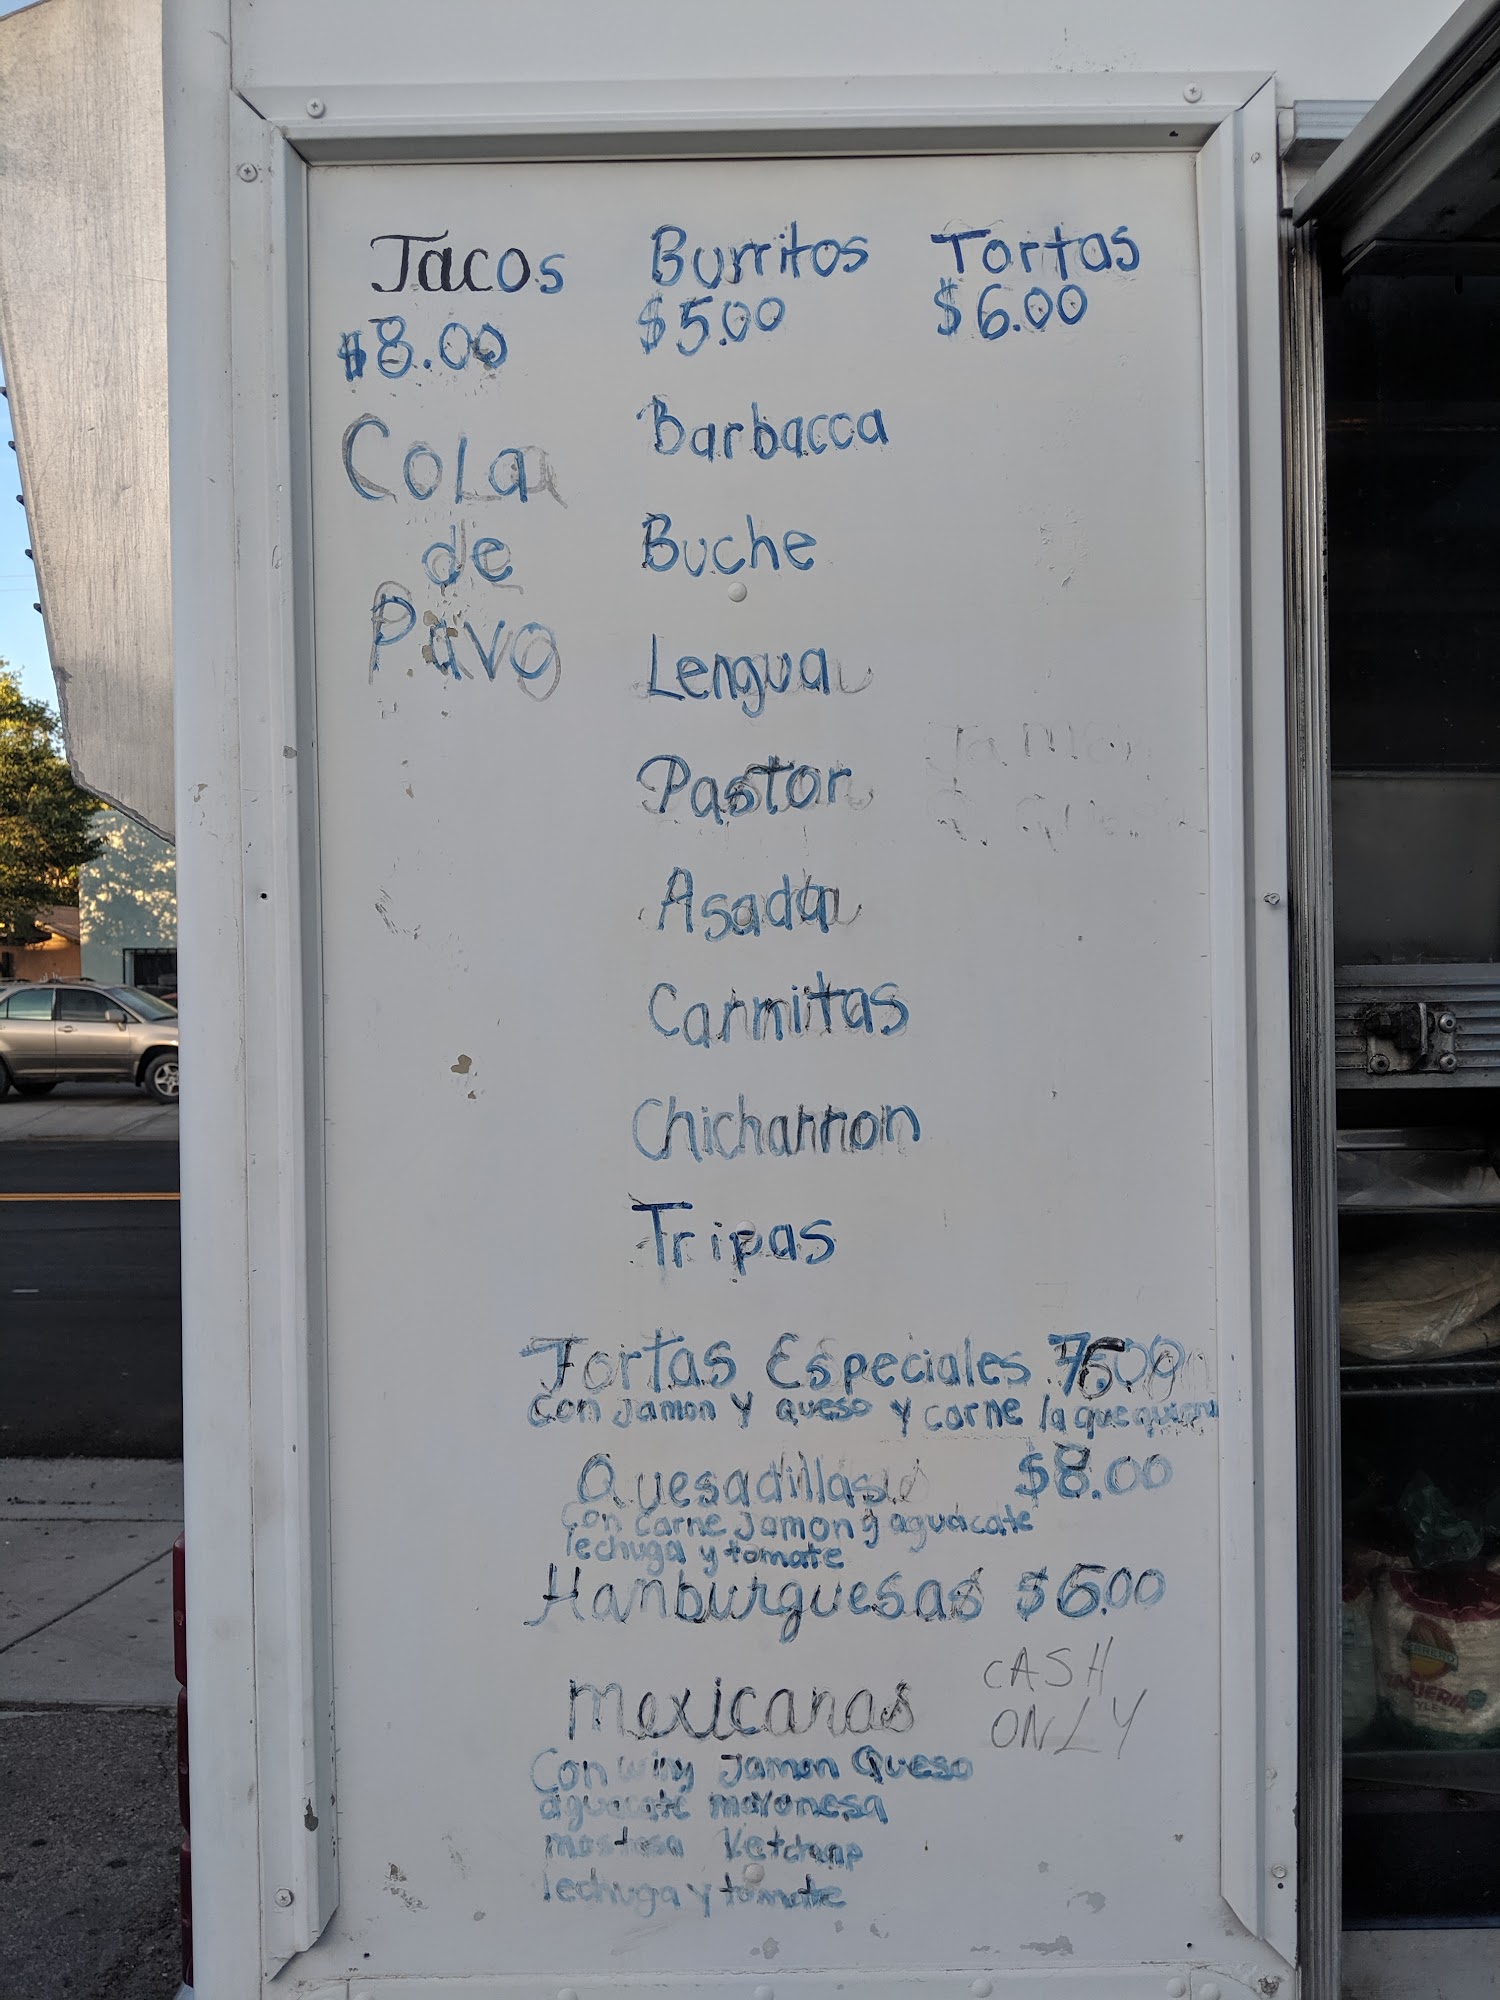 Tacos
$8.00
Cola
de
Pavo
Burritos
$5.00
Tortas
$6.00
Barbacoa
Buche
Lengua
Pastor
Asada
Carnitas
Chicharron
Tripas
Tortas Especiales
Con Jamon y queso y carne la que quiera
Quesadillas $8.00
Con Carne Jamon y aguacate
lechuga y tomate
Hamburguesas $6.00
Mexicanas
CASH
ONLY
Con winy Jamon Queso
aguacate mayonesa
mostasa Ketchup
lechuga y tomate